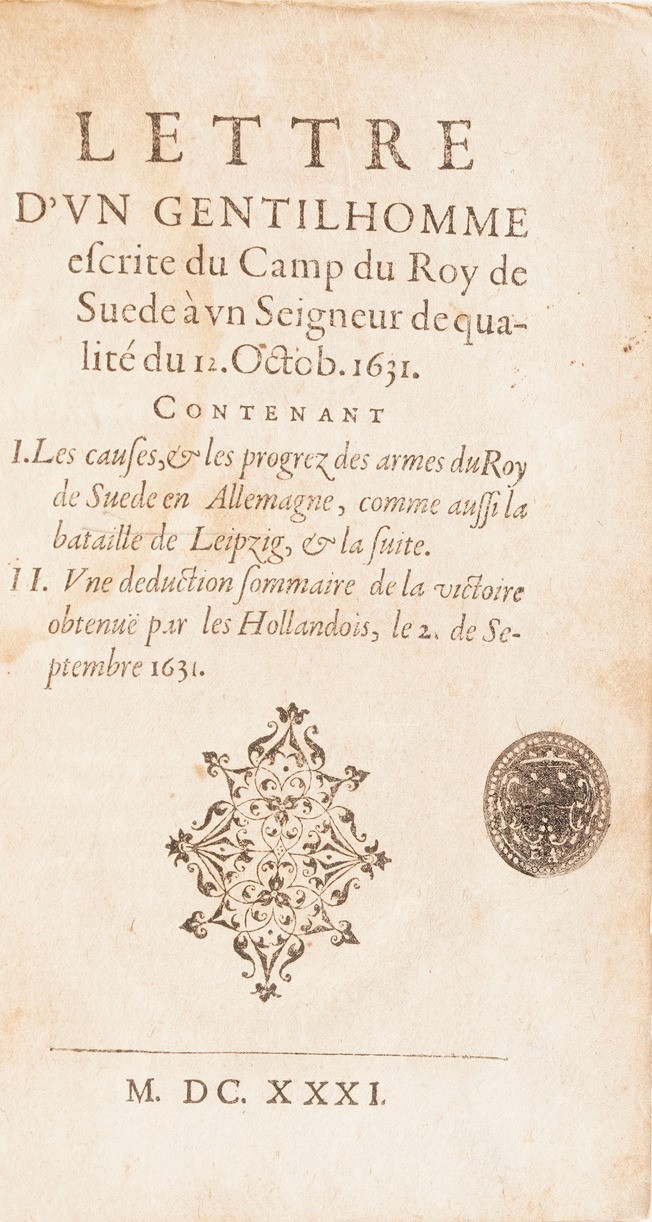 LETTRE
D'VN GENTILHOMME
eſcrite du Camp du Roy de
Suede à vn Seigneur de qua-
lité du 12. Octob. 1631.
CONTENANT
I. Les cauſes, & les progrez des armes du Roy
de Suede en Allemagne, comme auſſi la
bataille de Leipzig, & la ſuite.
II. Vne deduction ſommaire de la victoire
obtenuë par les Hollandois, le 2. de Se-
ptembre 1631.
M. DC. XXXI.